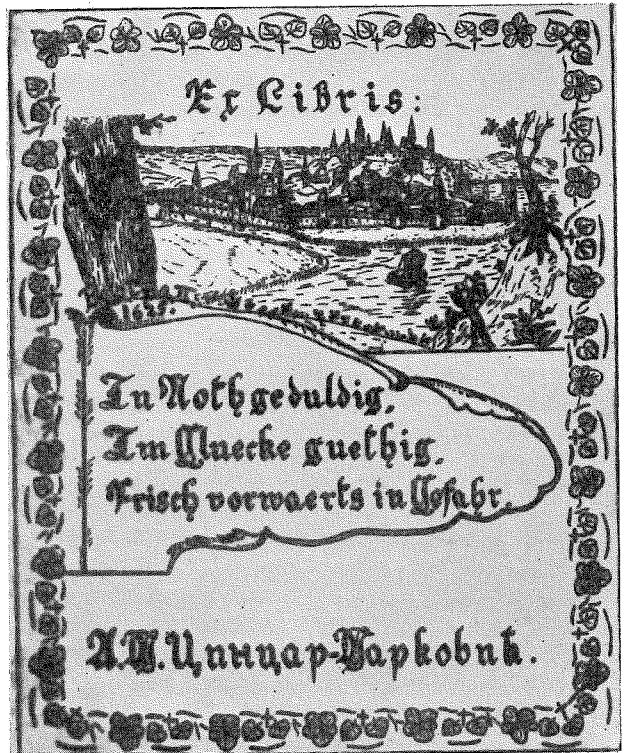 Ex Libris:
In Noth geduldig,
Im Gluecke guethig,
Frisch vorwaerts in Gefahr.
А.М. Цинцар-Марковић.